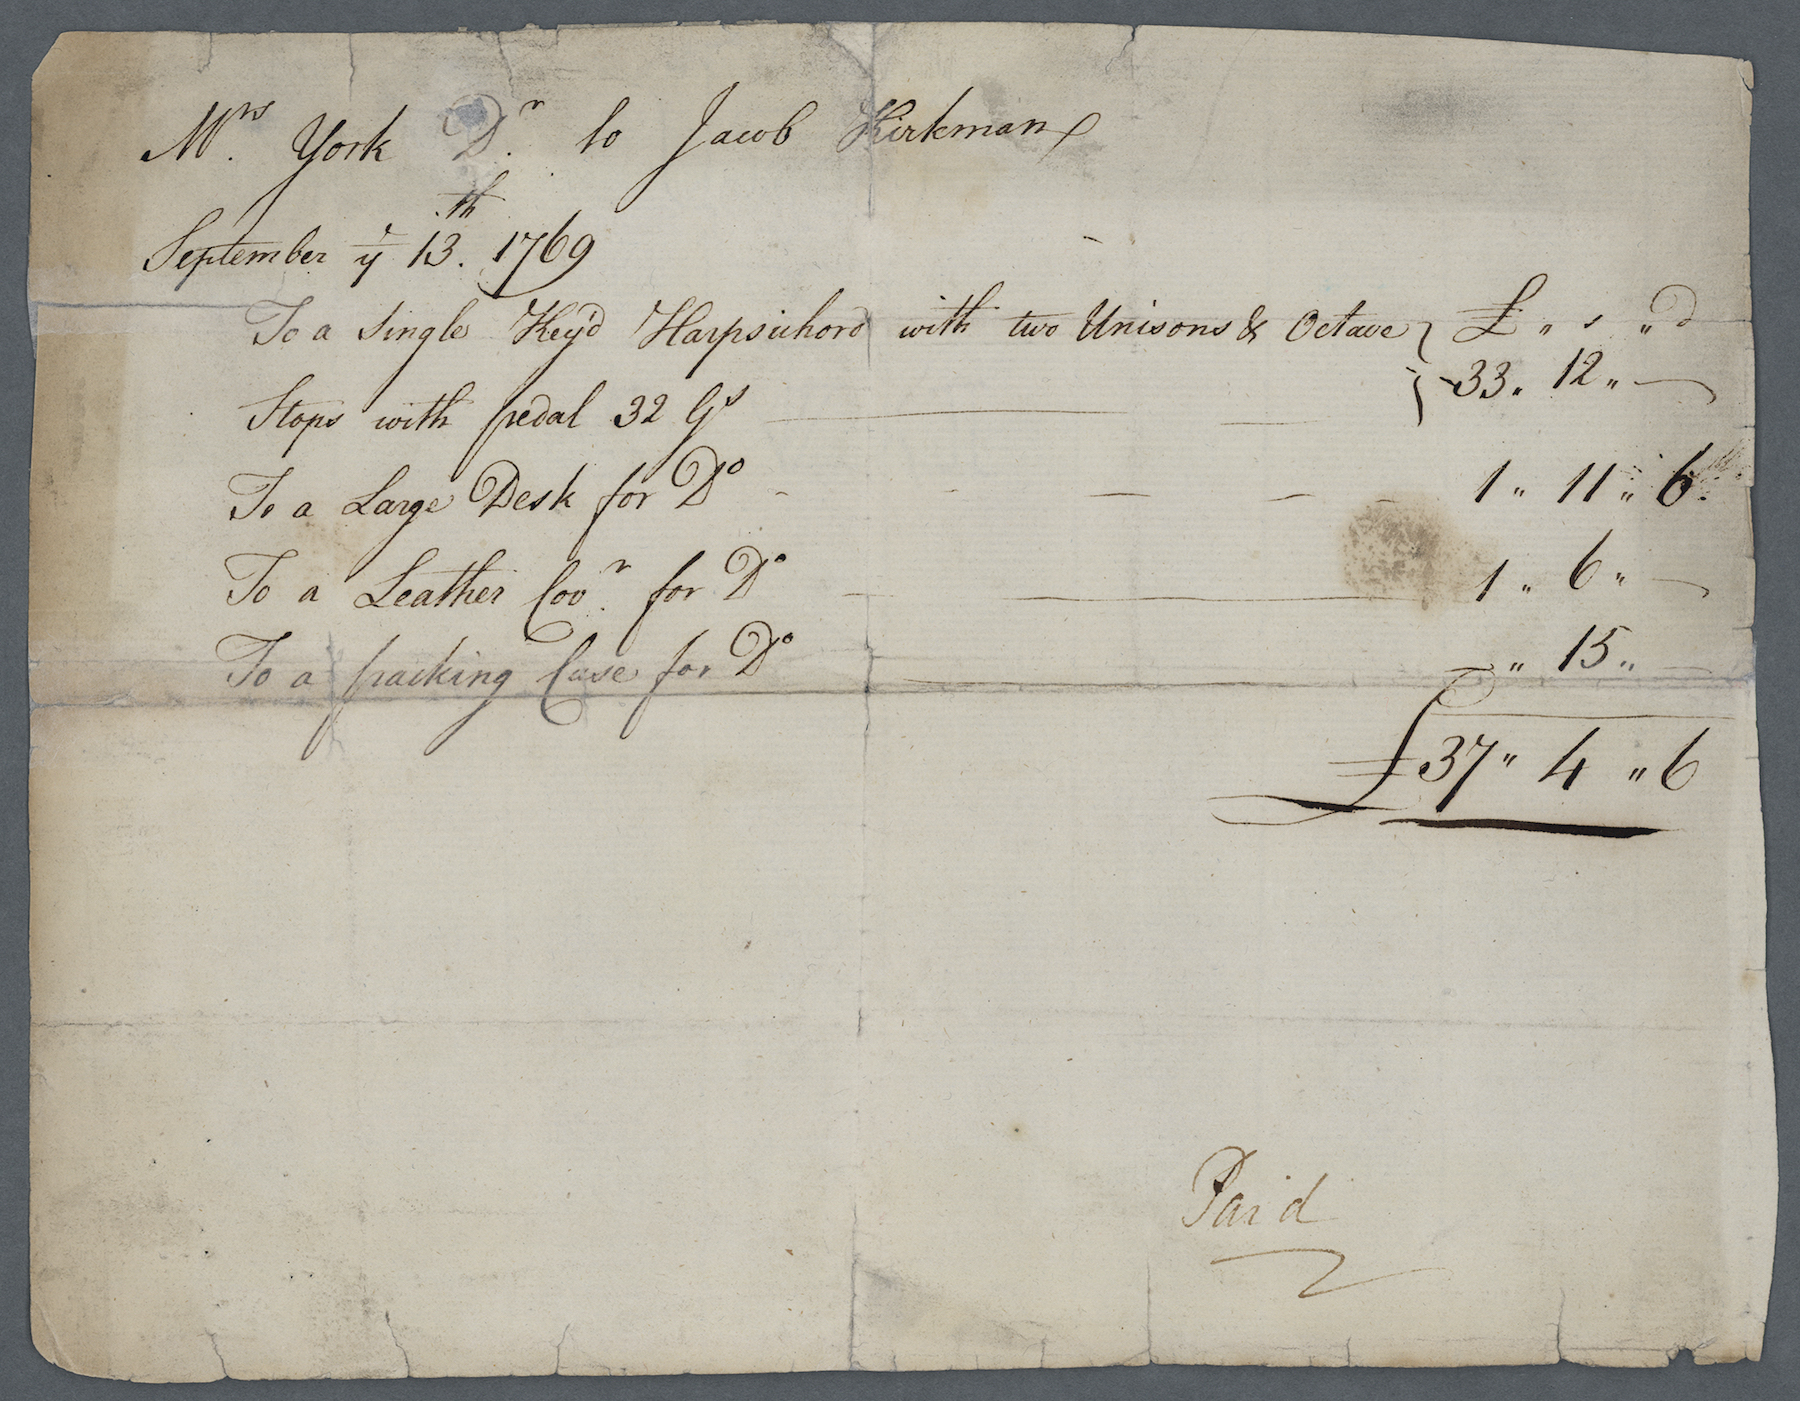 Mrs. York Dr. to Jacob Kirkman
September ye 13th. 1769
To a Single Key'd Harpsichord with two Unisons & Octave } £ " s " d
Stops with pedal 32 Gs — — } 33 " 12 " —
To a Large Desk for Do - - — — - 1 " 11 " 6
To a Leather Covr. for Do — — 1 " 6 " —
To a packing Case for Do — — " 15 " —
£37 " 4 " 6
Paid